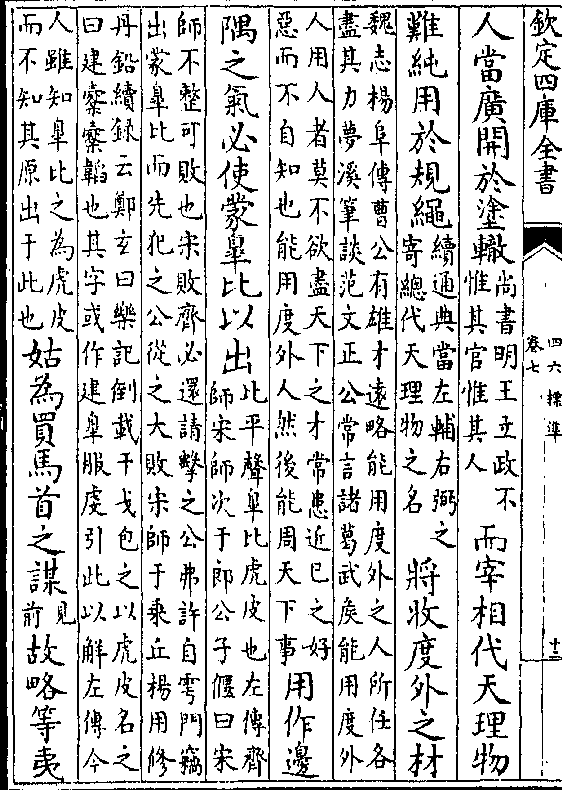 欽定四庫全書
四六標準
卷七
十三
人當廣開於塗轍尚書明王立政不惟其官惟其人而宰相代天理物
難純用於規繩續通典當左輔右弼之寄總代天理物之名將收度外之材
魏志楊阜傳曹公有雄才遠略能用度外之人所任各
盡其力夢溪筆談范文正公常言諸葛武侯能用度外
人用人者莫不欲盡天下之才常患近己之好
惡而不自知也能用度外人然後能周天下事用作邊
隅之氣必使蒙臯比以出比平聲臯比虎皮也左傳齊
師宋師次于郎公子偃曰宋
師不整可敗也宋敗齊必還請擊之公弗許自雩門竊
出蒙臯比而先犯之公從之大敗宋師于乘丘楊用修
丹鉛續録云鄭玄曰樂記倒載干戈包之以虎皮名之
曰建櫜櫜韜也其字或作建臯服虔引此以解左傳今
人雖知臯比之為虎皮
而不知其原出于此也姑為買馬首之謀見前故略等夷